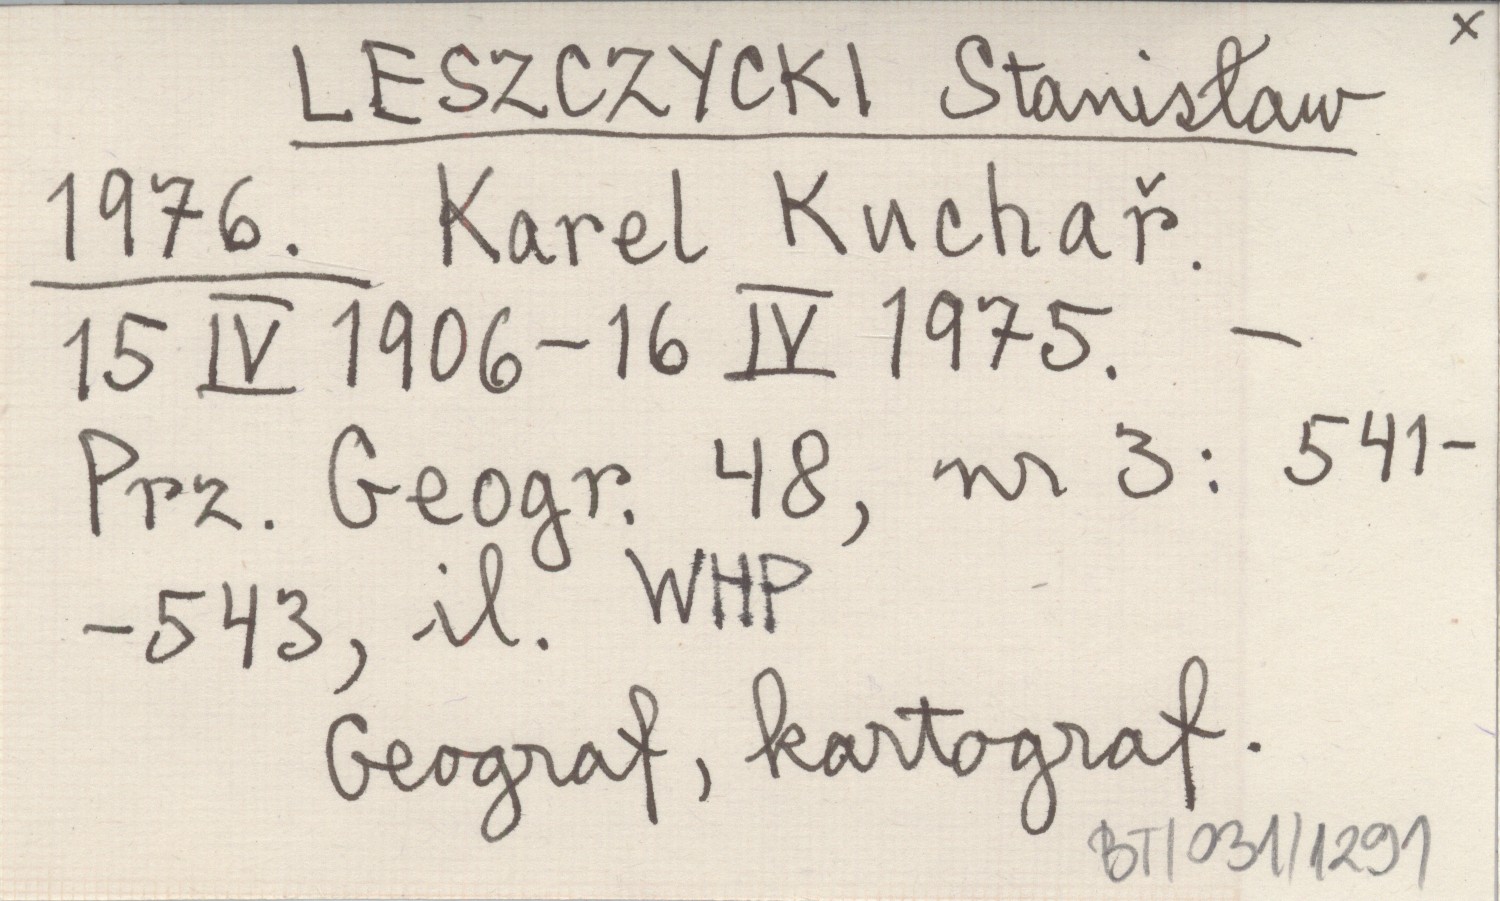 x
LESZCZYCKI Stanisław
1976. Karel Kuchař.
15 IV 1906-16 IV 1975. –
Prz. Geogr. 48, nr 3: 541-
-543, il. WHP
Geograf, kartograf.
BT/031/1291